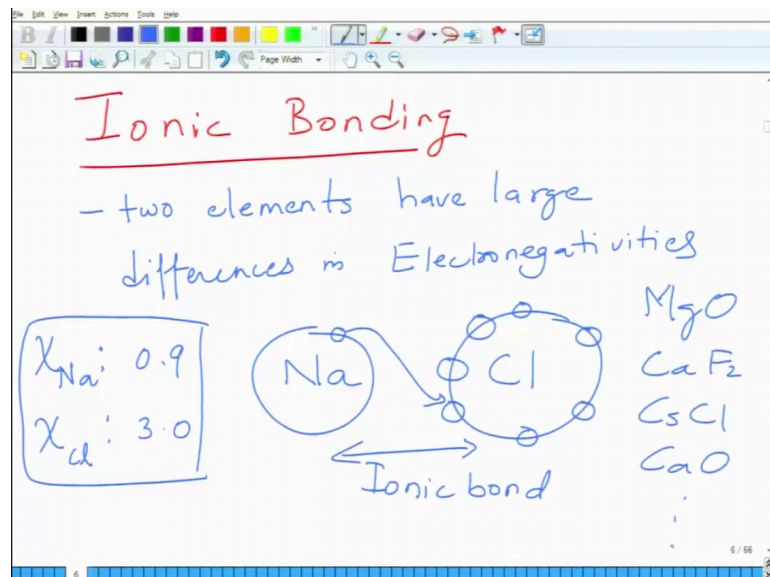 File Edit View Insert Actions Tools Help
B I
Page Width
Ionic Bonding
- two elements have large
differences in Electronegativities
χNa: 0.9
χCl: 3.0
Na
Cl
Ionic bond
MgO
CaF2
CsCl
CaO
6 / 66
6